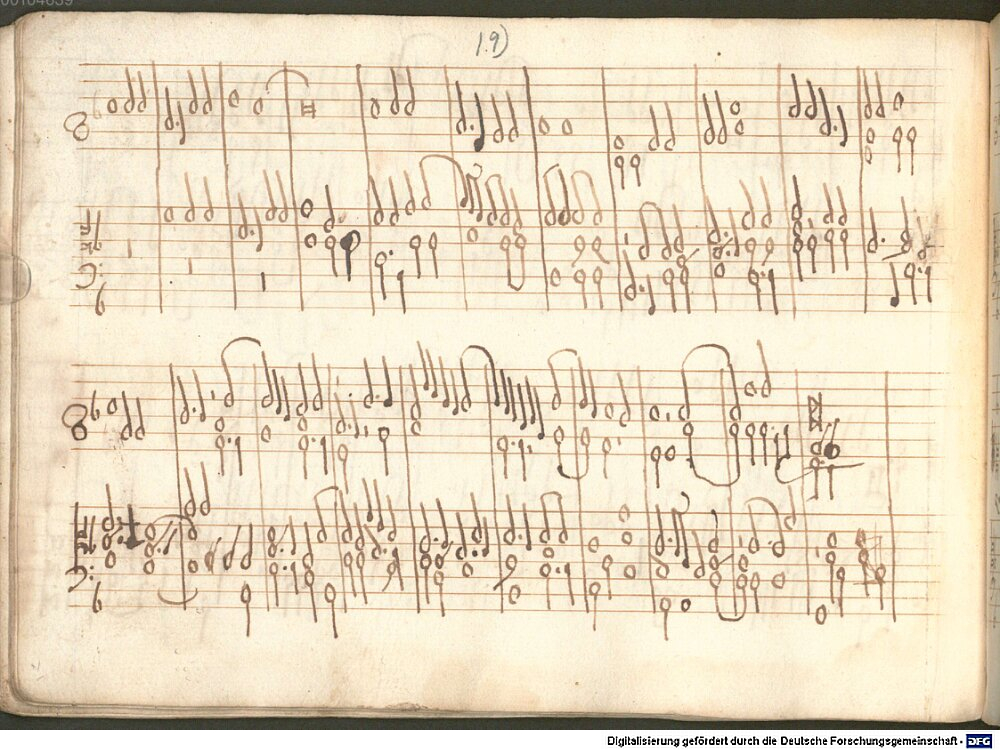 00104639
19)
Digitalisierung gefördert durch die Deutsche Forschungsgemeinschaft - DFG